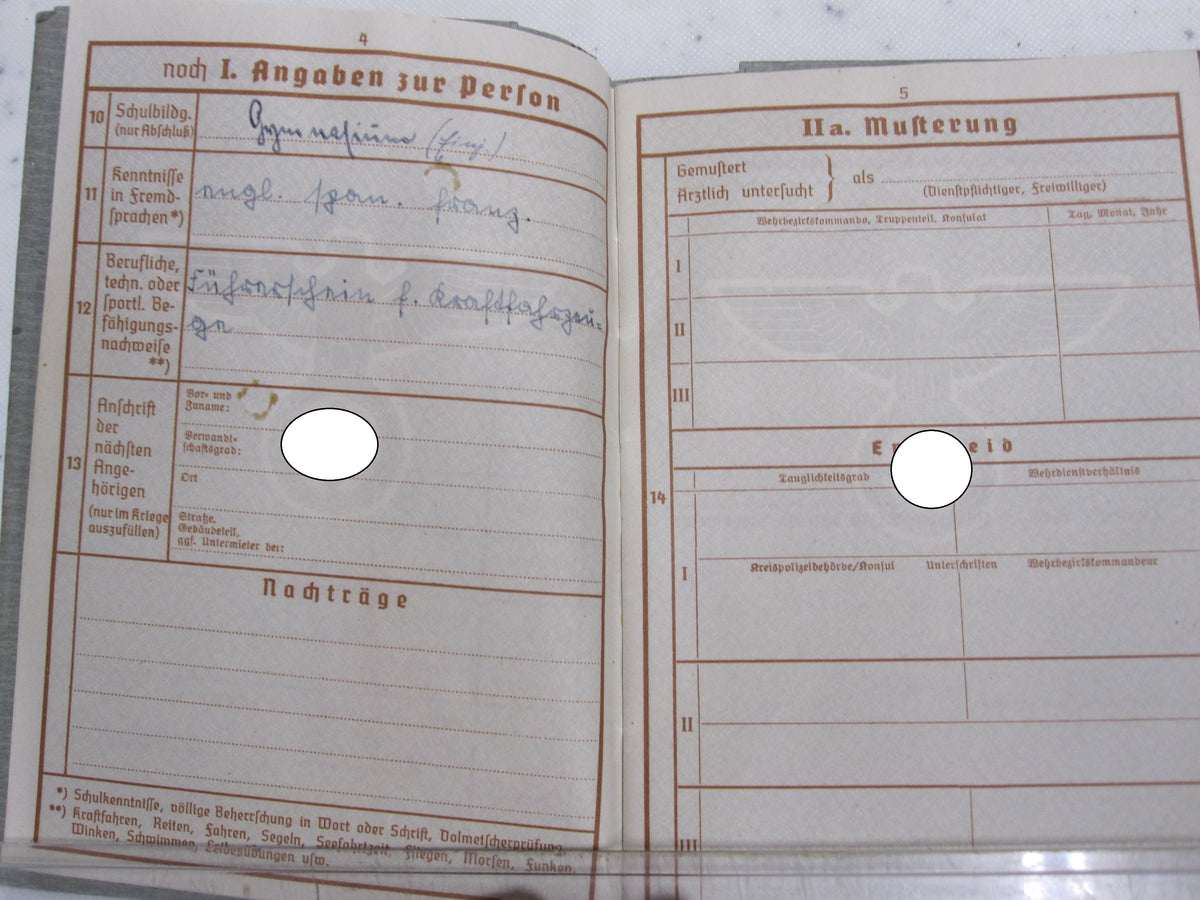 4
noch I. Angaben zur Person
10
Schulbildg.
(nur Abschluß)
Gymnasium (Einj.)
11
Kenntnisse
in Fremd-
sprachen *)
engl. span. franz.
12
Berufliche,
techn. oder
sportl. Be-
fähigungs-
nachweise
**)
Führerschein f. Kraftfahrzeu-
ge
13
Anschrift
der
nächsten
Ange-
hörigen
(nur im Kriege
auszufüllen)
Vor- und
Zuname:
Verwandt-
schaftsgrad:
Ort
Straße,
Gebäudeteil,
ggf. Untermieter bei:
Nachträge
*) Schulkenntnisse, völlige Beherrschung in Wort oder Schrift, Dolmetscherprüfung.
**) Kraftfahren, Reiten, Fahren, Segeln, Seefahrtzeit, Fliegen, Morsen, Funken,
Winken, Schwimmen, Leibesübungen usw.
5
IIa. Musterung
Gemustert
Ärztlich untersucht
als
(Dienstpflichtiger, Freiwilliger)
Wehrbezirkskommando, Truppenteil, Konsulat
Tag, Monat, Jahr
I
II
III
14
E eid
Tauglichkeitsgrad
Wehrdienstverhältnis
I
Kreispolizeibehörde/Konsul
Unterschriften
Wehrbezirkskommandeur
II
III